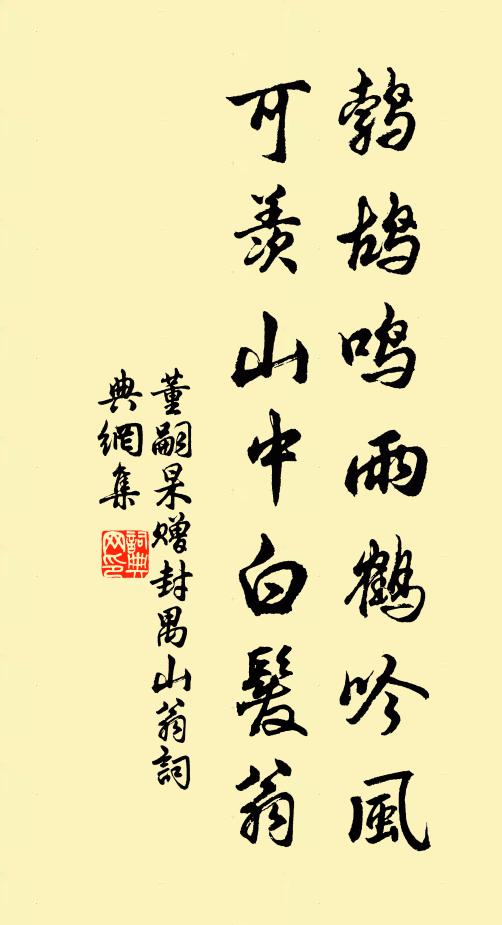 鹁鸪鸣雨鹤吟风
可羡山中白髮翁
董嗣杲赠封禺山翁詞
典網集
詞典网印